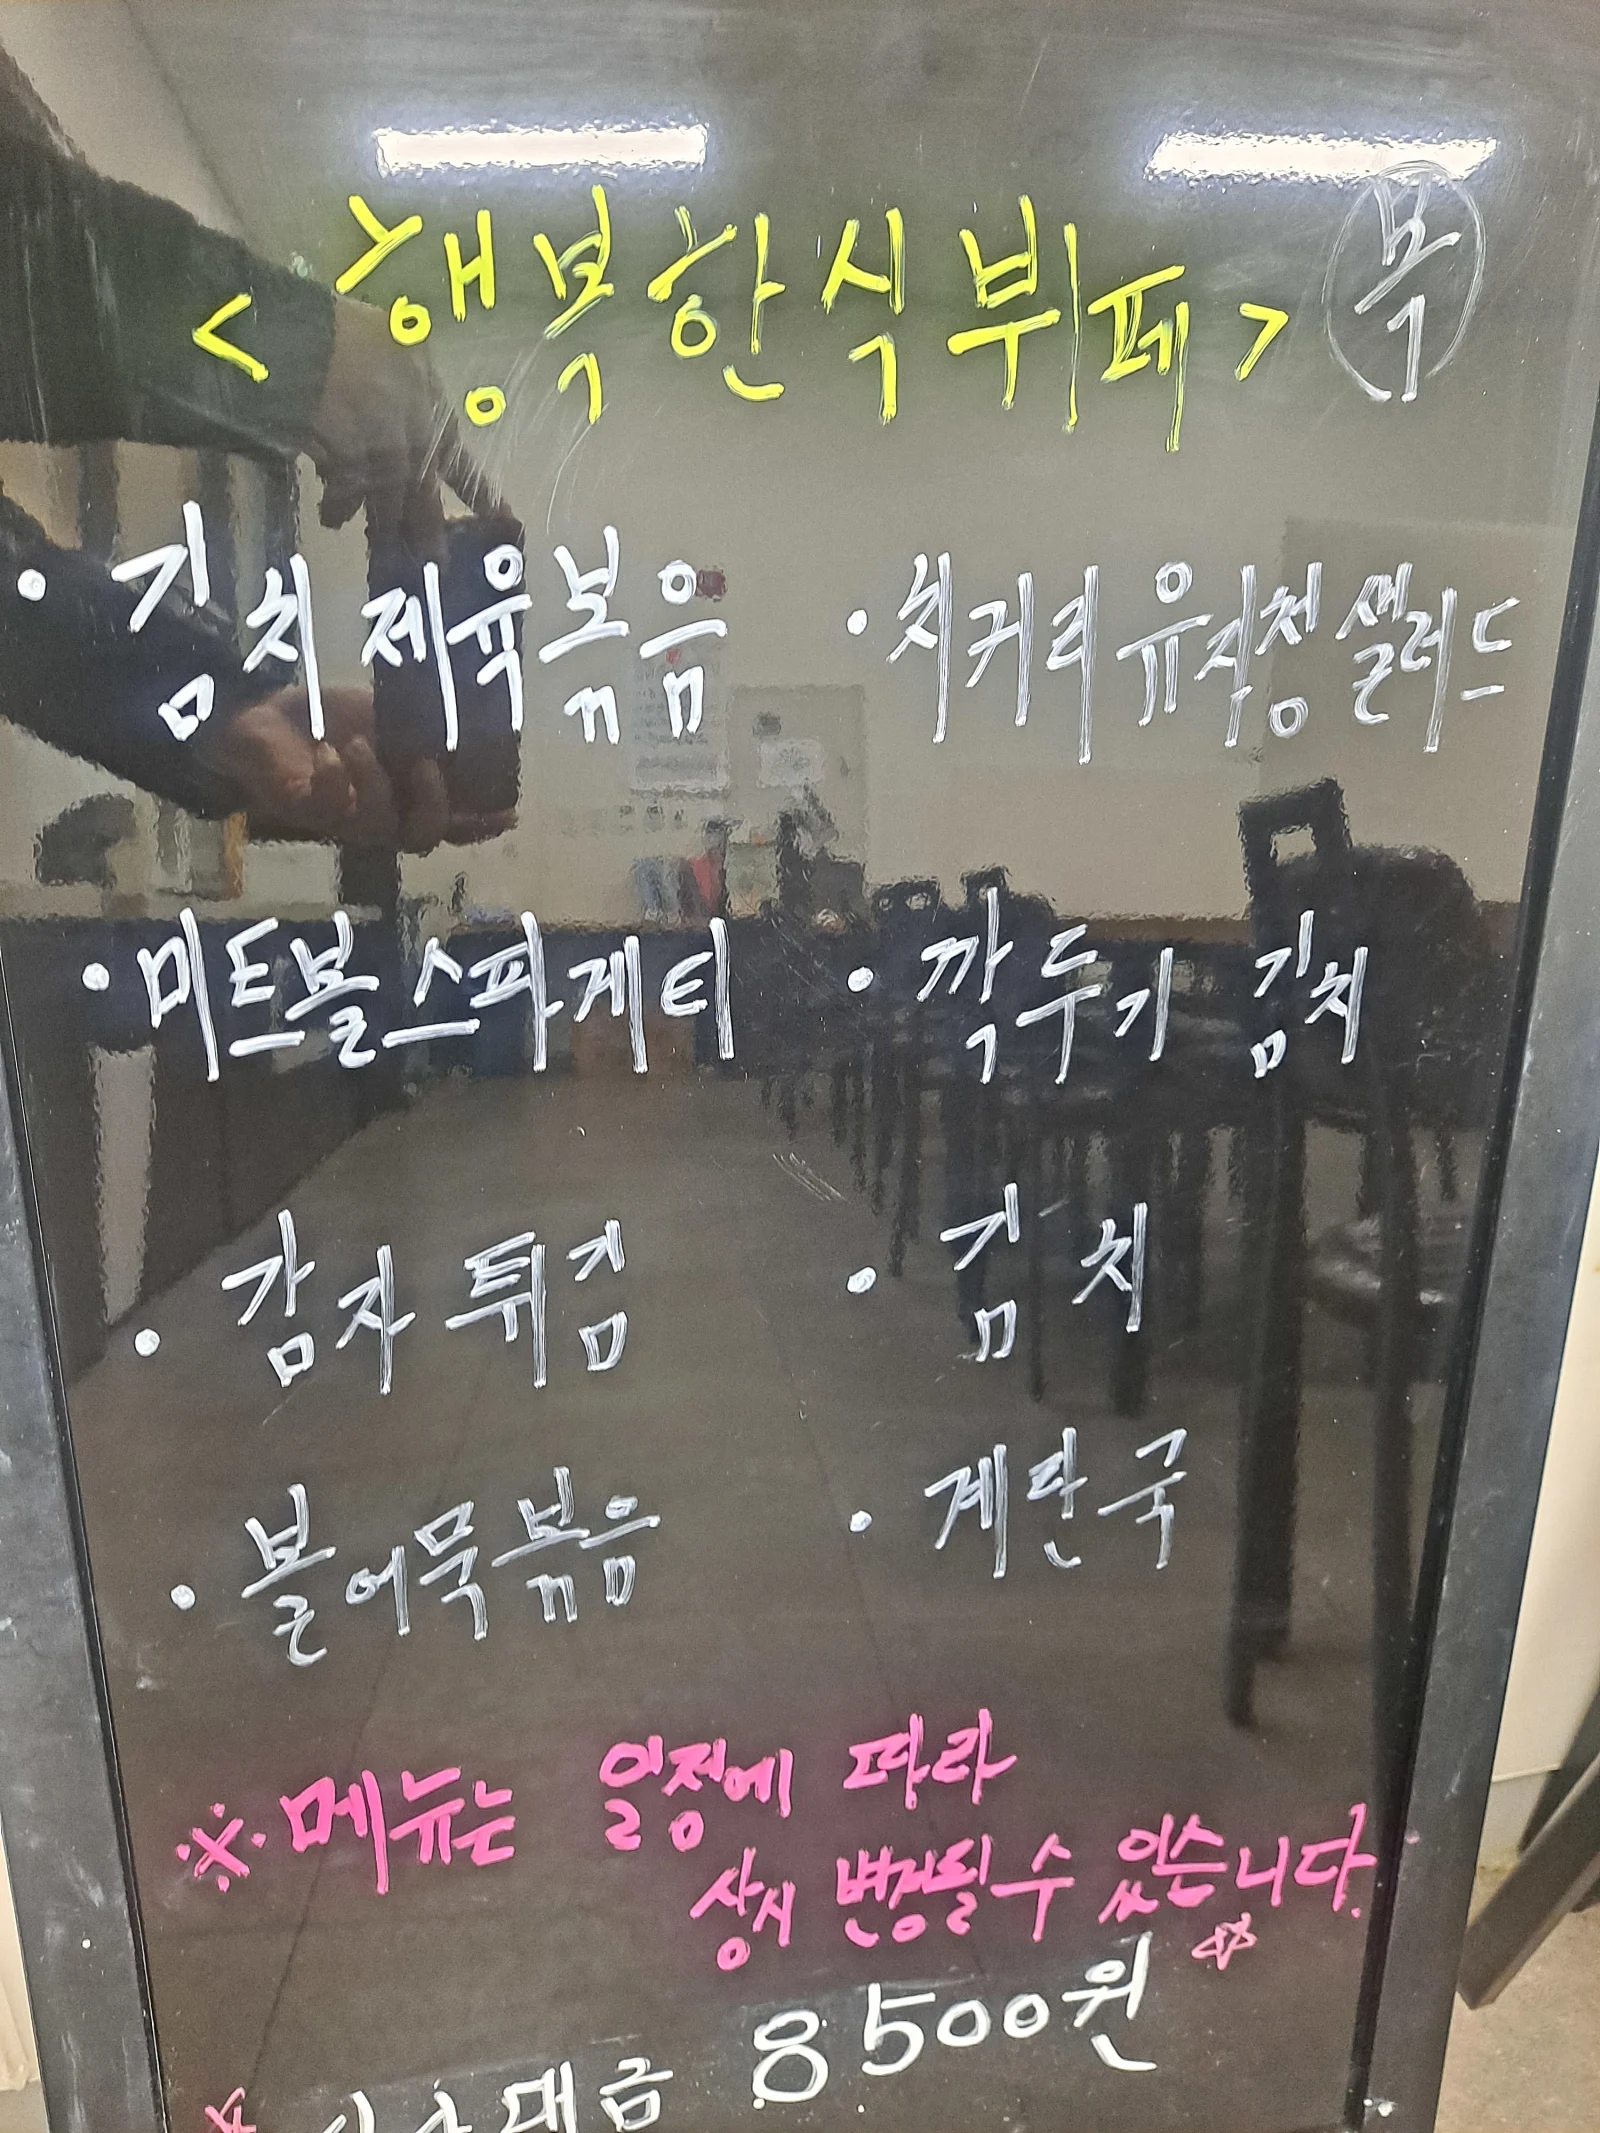 <행복한식뷔페> 목
· 김치제육볶음
· 치커리유자청샐러드
· 미트볼스파게티
· 깍두기 김치
· 감자튀김
· 김치
· 볼어묵볶음
· 계란국
※메뉴는 일정에 따라
상시 변경될 수 있습니다.
☆
대금 8500원